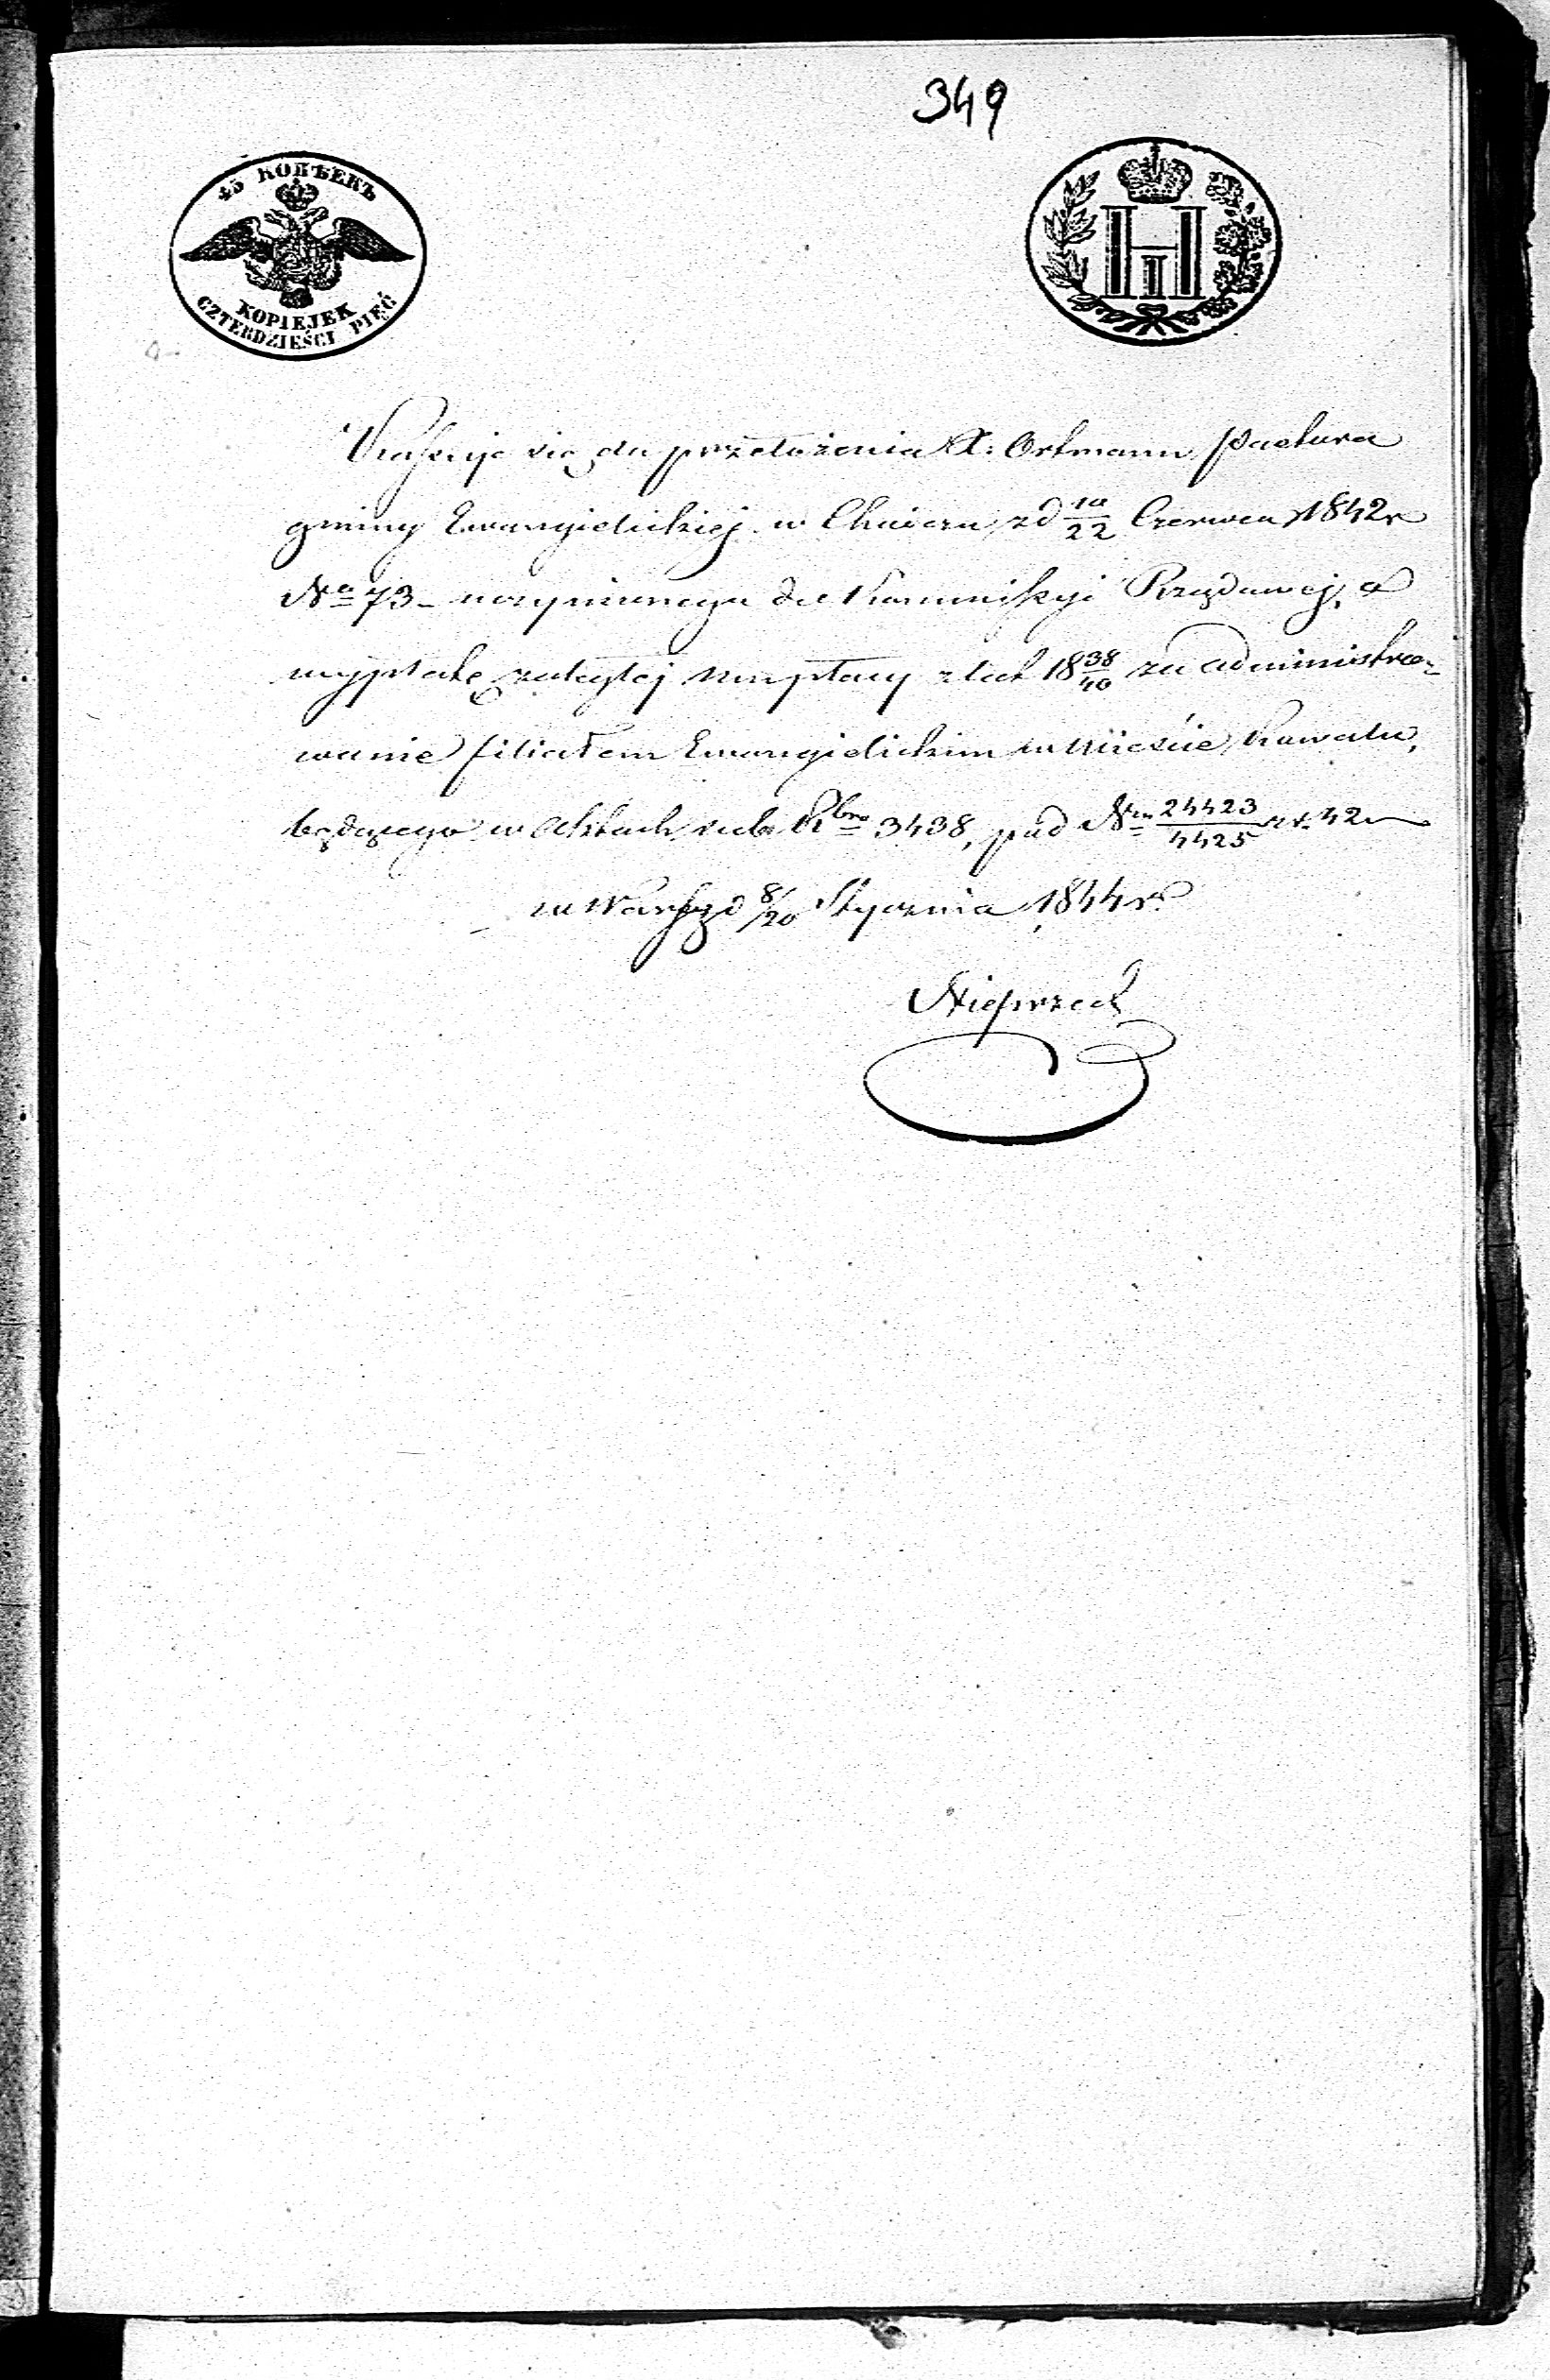 349
45 КОПѢЕКЪ
KOPIEJEK
CZTERDZIEŚCI PIĘĆ
Н I
Kassuje się do przełożenia X: Ortmann Pastora
gminy Ewangielickiej w zd 10/22 Czerwca 1842 r
No 73 uczynionego do Kommissyi Rządowej, o
wypłatę zaległej płacy z lat 18 38/40 za administro-
wanie filiałem Ewangielickim w Mieście Kowalu,
będącego w Aktach sub Rbro 3438, pod Nrm 24423/4425 z r. 42
w Warsz d 8/20 Stycznia 1844 r.